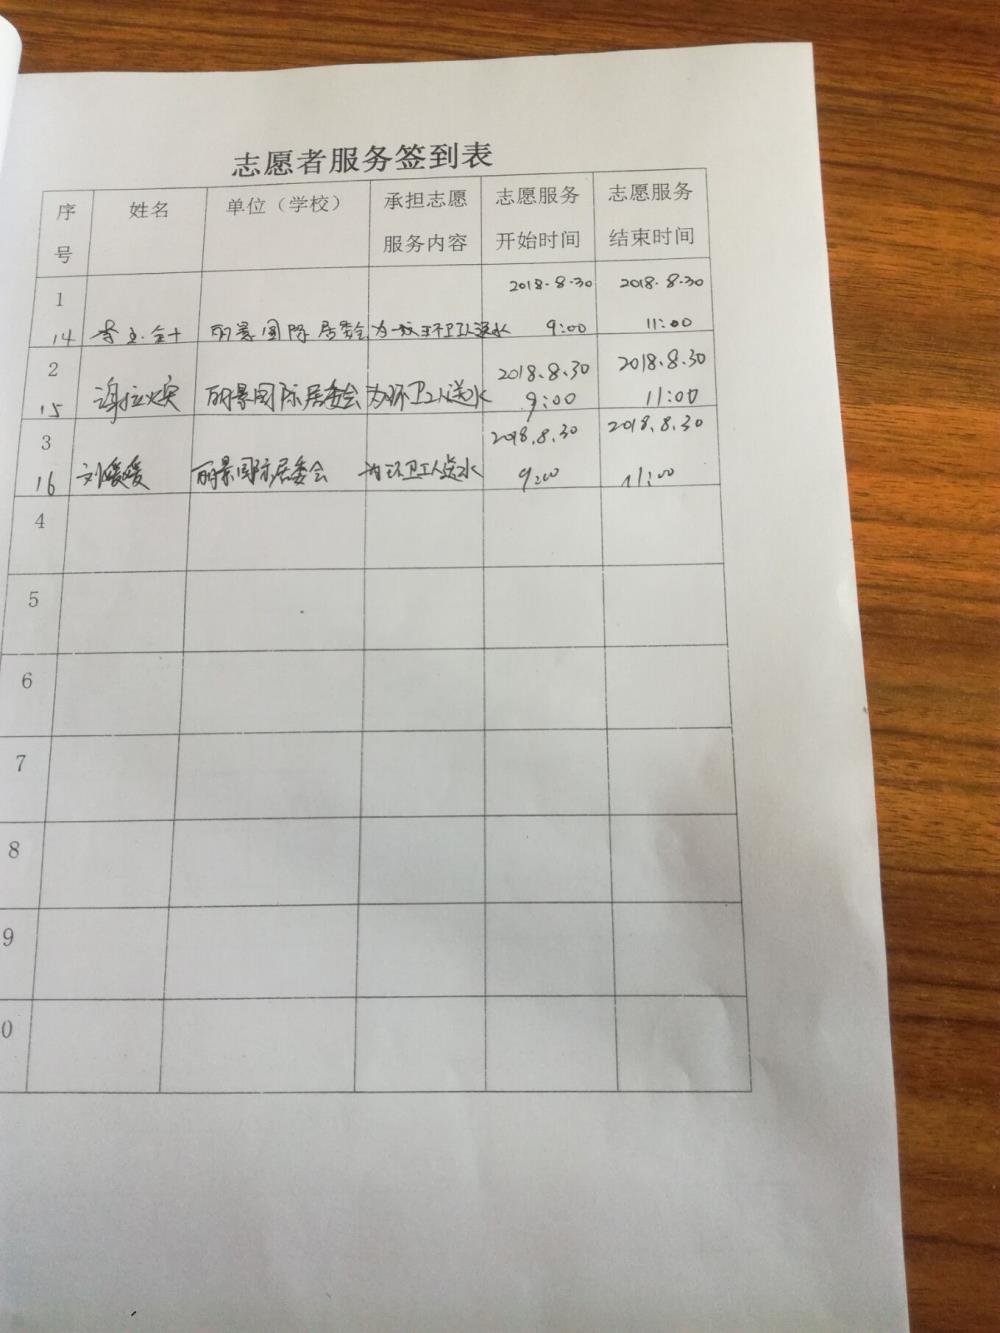 志愿者服务签到表
序号 姓名 单位（学校） 承担志愿服务内容 志愿服务开始时间 志愿服务结束时间
1 2018.8.30 2018.8.30
14 丽景国际居委会 为 环卫工人送水 9:00 11:00
2 2018.8.30 2018.8.30
15 丽景国际居委会 为环卫工人送水 9:00 11:00
3 2018.8.30 2018.8.30
16 刘媛媛 丽景国际居委会 为环卫工人送水 9:00 11:00
4
5
6
7
8
9
0